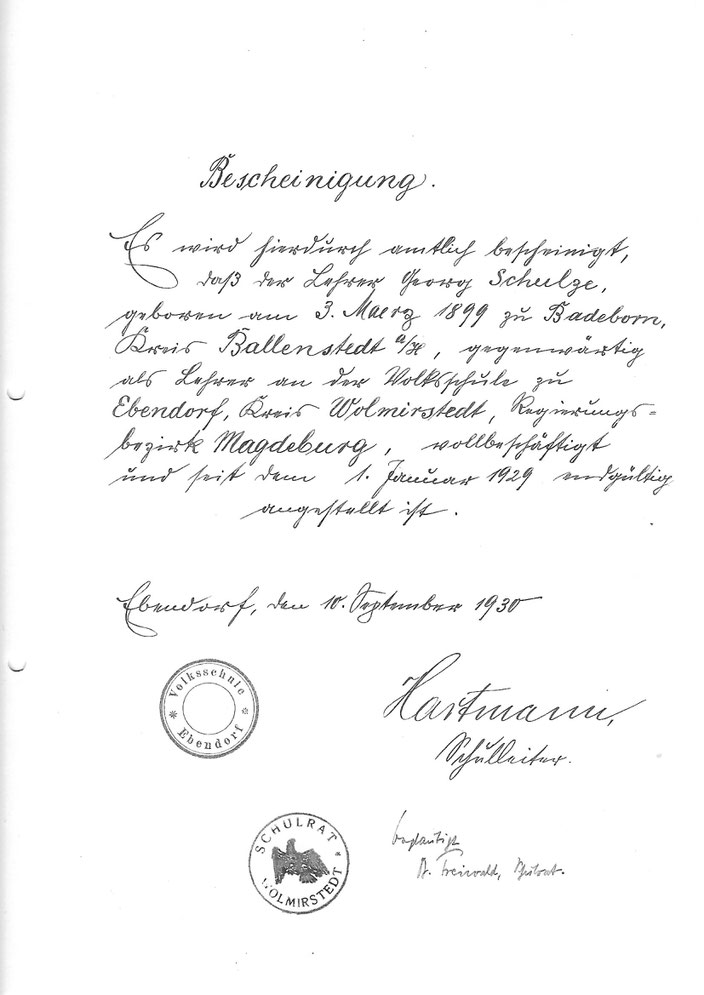 Bescheinigung.
Es wird hierdurch amtlich bescheinigt,
daß der Lehrer Georg Schulze,
geboren am 3. Maerz 1899 zu Badeborn,
Kreis Ballenstedt a/H, gegenwärtig
als Lehrer an der Volksschule zu
Ebendorf, Kreis Wolmirstedt, Regierungs=
bezirk Magdeburg, vollbeschäftigt
und seit dem 1. Januar 1929 endgültig
angestellt ist.
Ebendorf, den 10. September 1930
Volksschule
Ebendorf
Hartmann,
Schulleiter.
SCHULRAT
WOLMIRSTEDT
beglaubigt
Freiwald, Schulrat.